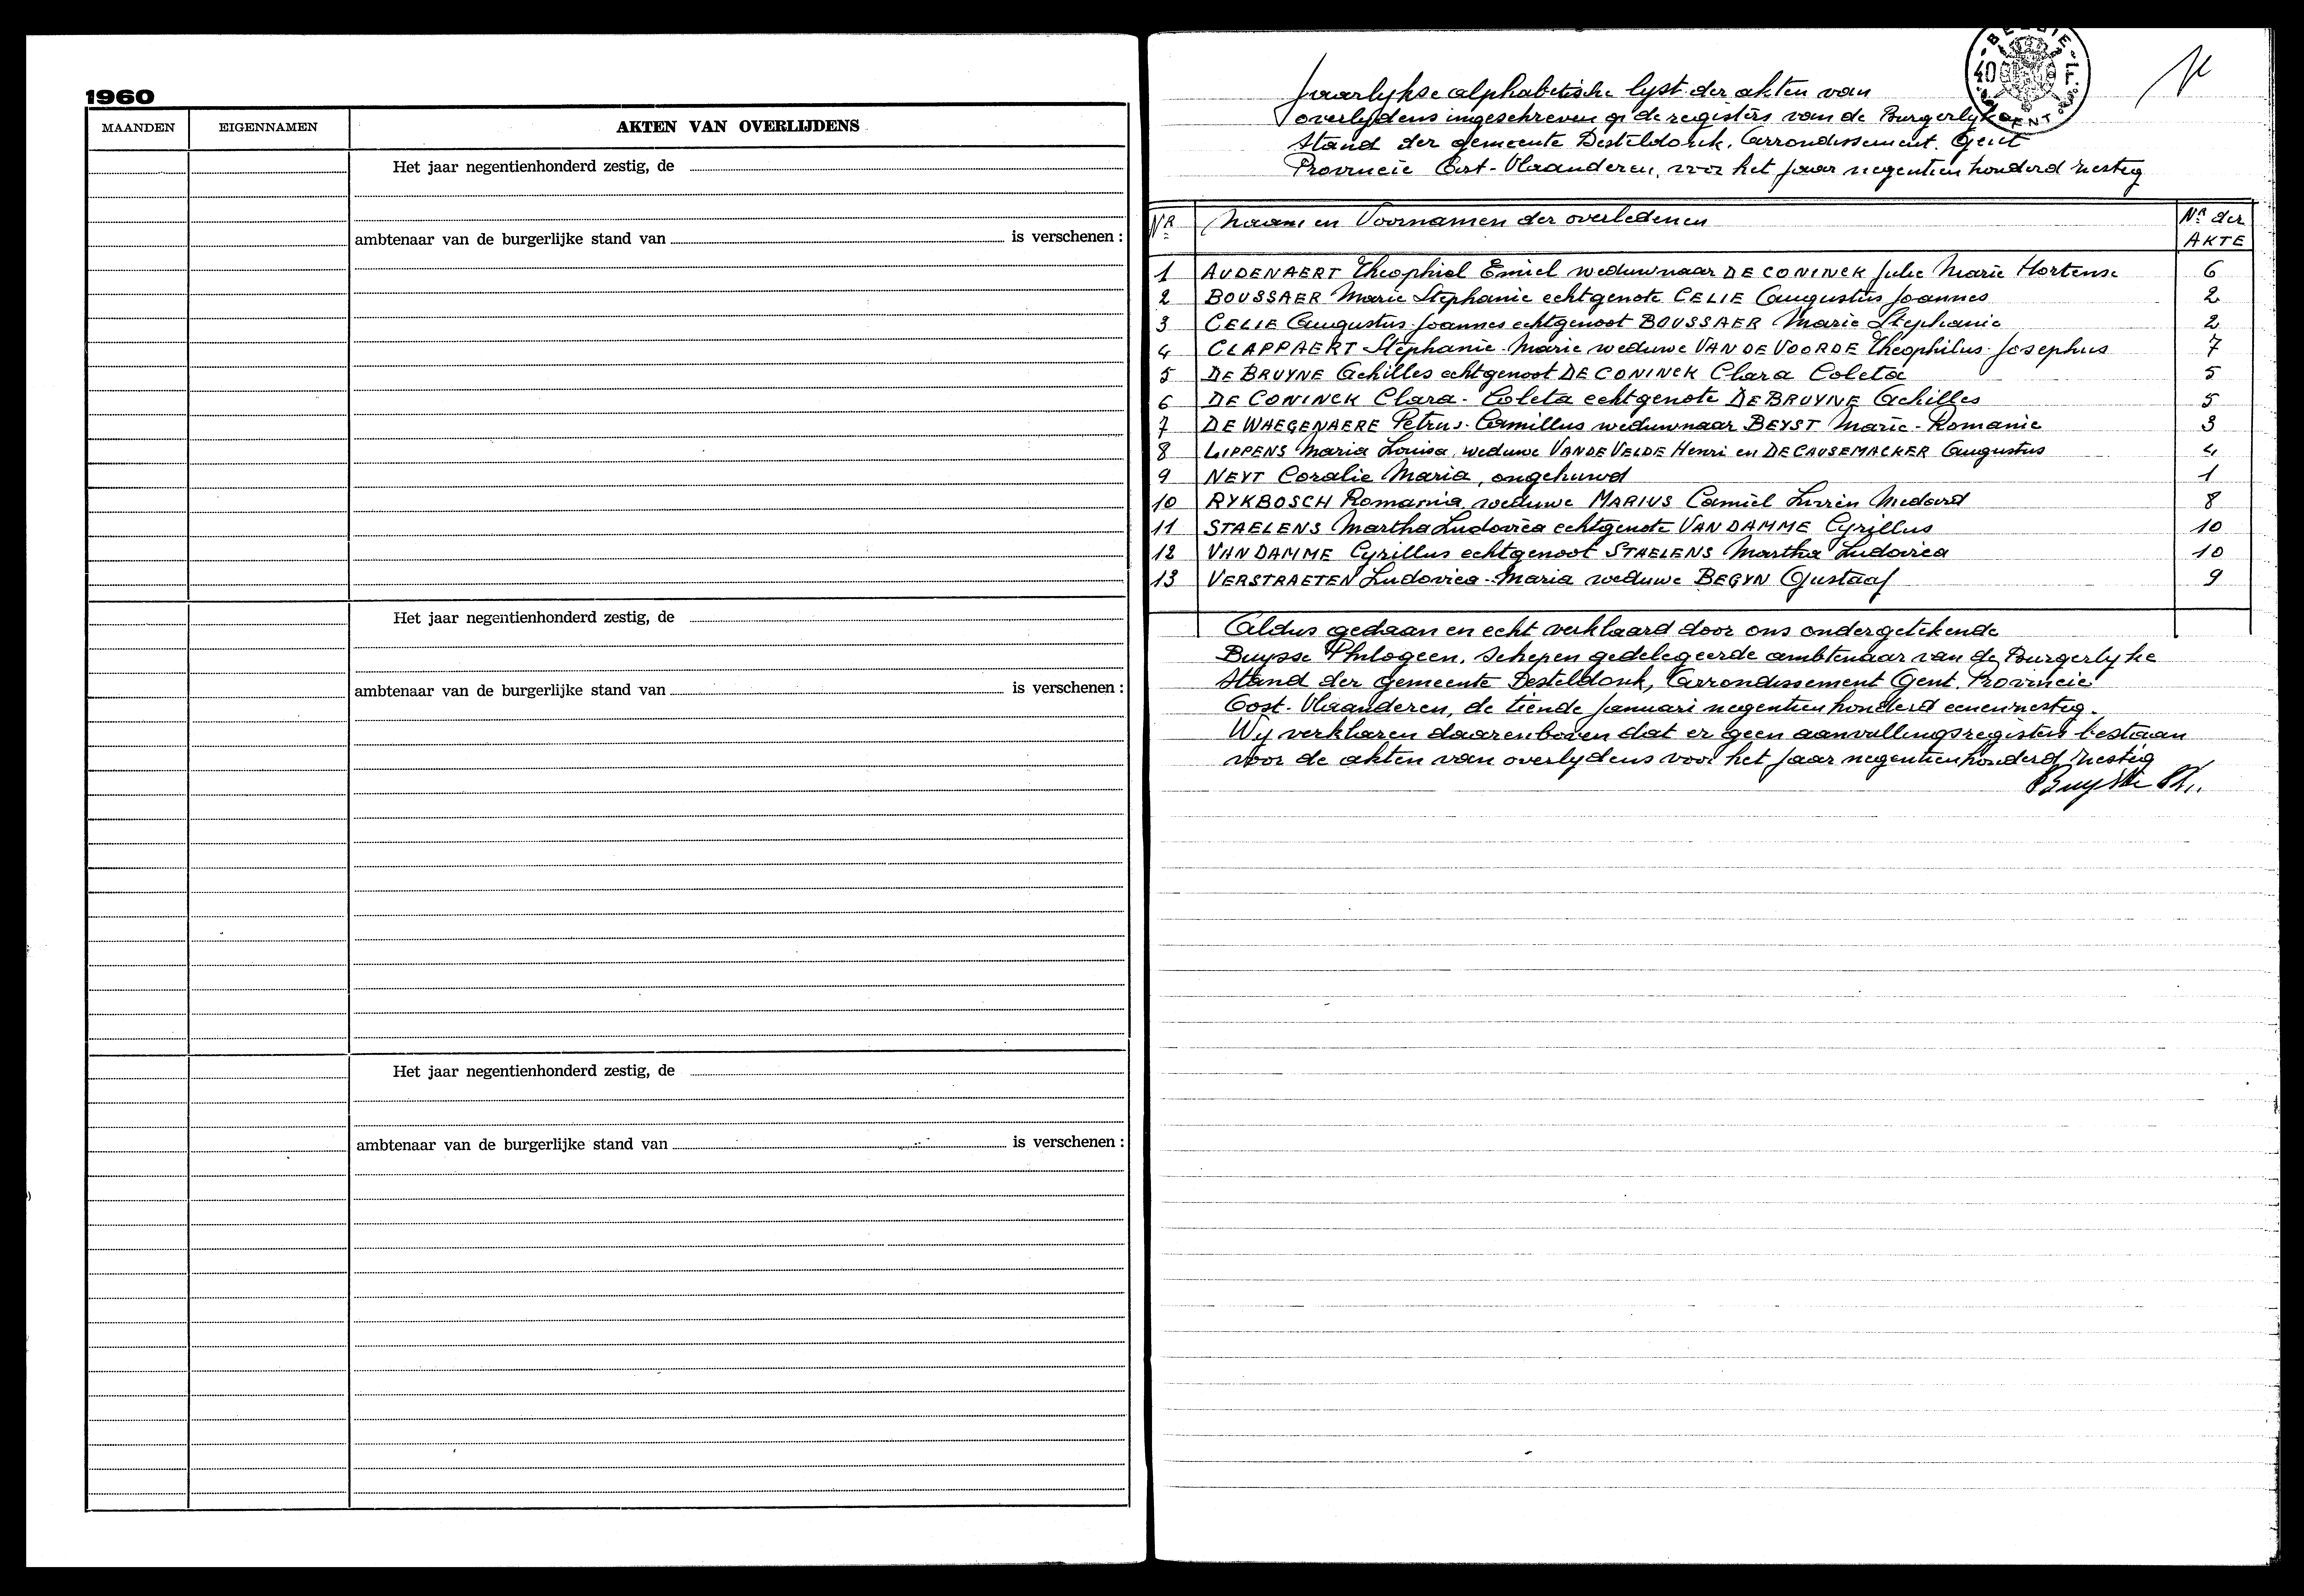 1960
MAANDEN EIGENNAMEN AKTEN VAN OVERLIJDENS
Het jaar negentienhonderd zestig, de
ambtenaar van de burgerlijke stand van is verschenen :
Het jaar negentienhonderd zestig, de
ambtenaar van de burgerlijke stand van is verschenen :
Het jaar negentienhonderd zestig, de
ambtenaar van de burgerlijke stand van is verschenen :
Jaarlykse alphabetische lyst der akten van
overlydens ingeschreven op de registers van de Burgerlyke
Stand der gemeente Desteldonk, Arrondissement Gent
Provincie Oost-Vlaanderen, voor het jaar negentien honderd zestig
Nr Naam en Voornamen der overledenen Nr der
AKTE
1 AUDENAERT Theophiel Emiel weduwnaar DE CONINCK Julie Marie Hortense 6
2 BOUSSAER Marie Stephanie echtgenote CELIE Augustus Joannes 2
3 CELIE Augustus Joannes echtgenoot BOUSSAER Marie Stephanie 2
4 CLAPPAERT Stephanie-Marie weduwe VAN DE VOORDE Theophilus-Josephus 7
5 DE BRUYNE Achilles echtgenoot DE CONINCK Clara Coleta 5
6 DE CONINCK Clara-Coleta echtgenote DE BRUYNE Achilles 5
7 DE WAEGENAERE Petrus-Camillus weduwnaar BEYST Marie-Romanie 3
8 LIPPENS Maria Louisa, weduwe VANDE VELDE Henri en DE CAUSEMACKER Augustus 4
9 NEYT Coralie Maria, ongehuwd 1
10 RYKBOSCH Romania, weduwe MARIUS Camiel Livien Medard 8
11 STAELENS Martha Ludovica echtgenote VAN DAMME Cyrillus 10
12 VAN DAMME Cyrillus echtgenoot STAELENS Martha Ludovica 10
13 VERSTRAETEN Ludovica-Maria weduwe BEGYN Gustaaf 9
Aldus gedaan en echt verklaard door ons ondergetekende
Buysse Philogeen, Schepen gedelegeerde ambtenaar van de Burgerlyke
Stand der gemeente Desteldonk, Arrondissement Gent. Provincie
Oost-Vlaanderen, de tiende Januari negentien honderd eenenzestig.
Wy verklaren daarenboven dat er geen aanvullingsregisters bestaan
voor de akten van overlydens voor het jaar negentienhonderd zestig
Buysse Ph.